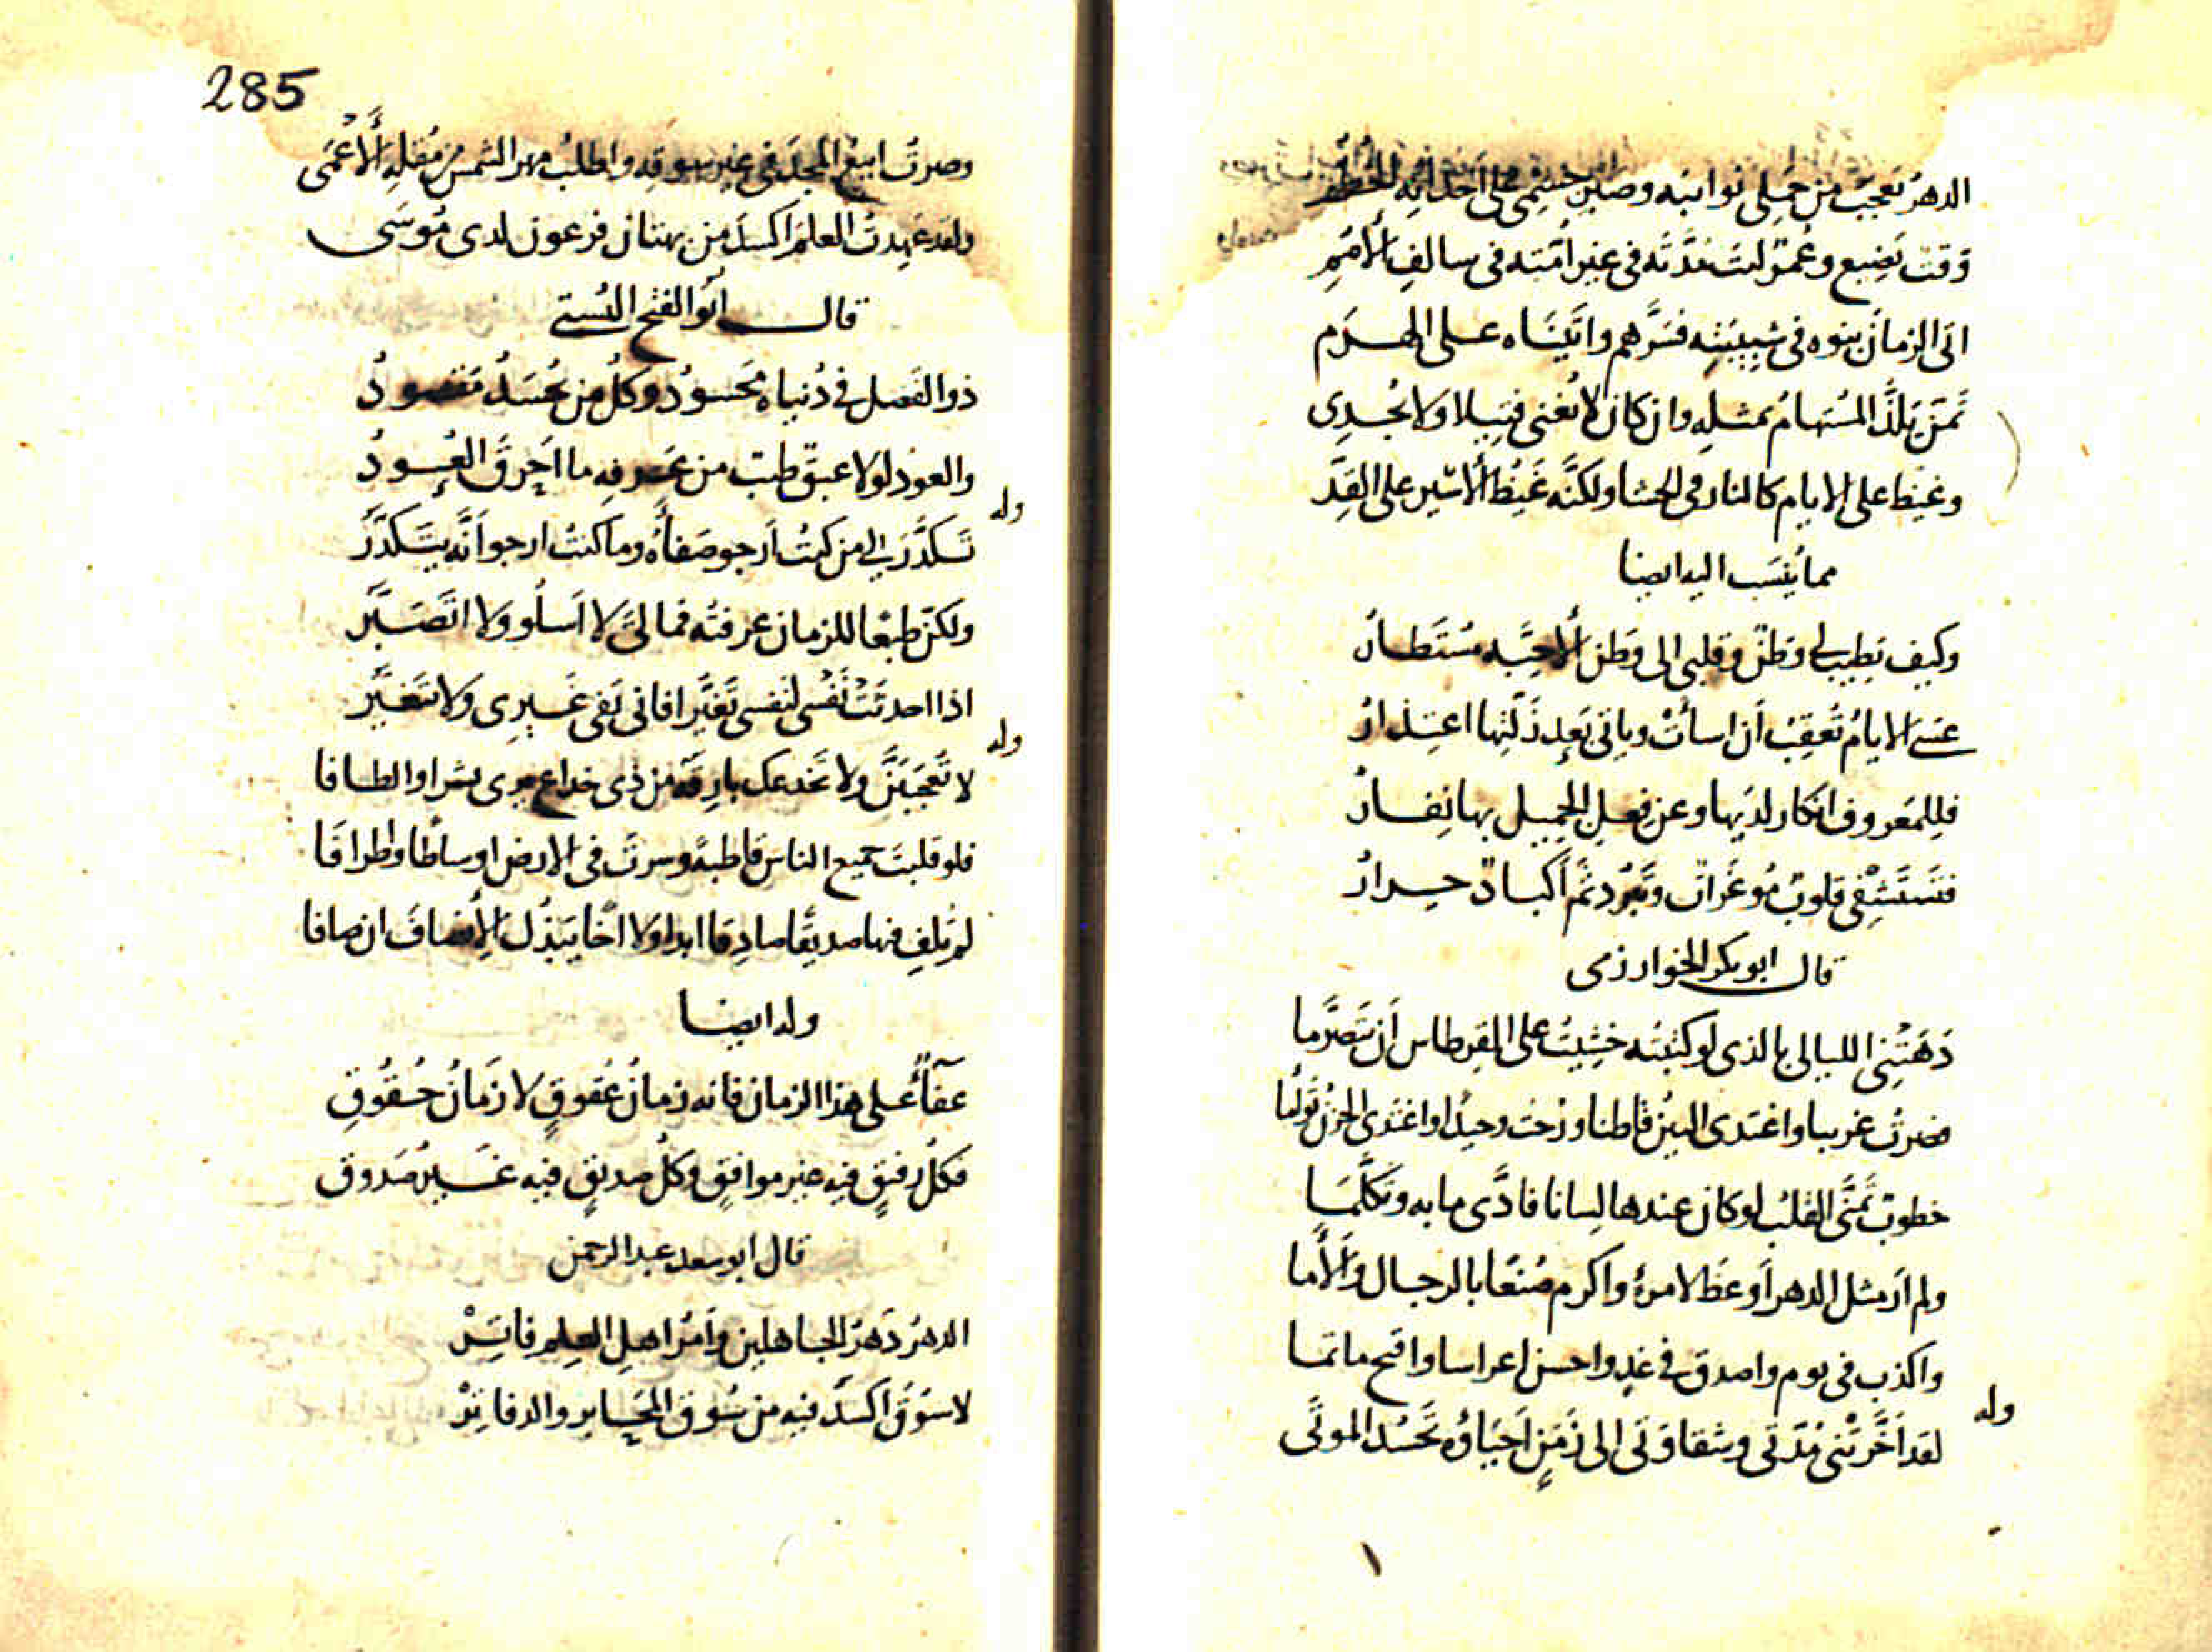 الدهرُ تعجّبَ من حملي نوائبَه وصبرِ جسمي على أحداثِه الحُطُمِ
وقتٌ يَضيع وعُمرٌ ليتَ مُدَّتَه في غير أمّته في سالفِ الأُمَمِ
اتى الزمانَ بنوه في شبيبته فسَرَّهم واتيناه على الهرم
تمنٍّ يلذُّ المُستهامُ بمثله وان كان لا يُغني فتيلا ولا يُجدي
وغيظٌ على الايام كالنار في الحشا ولكنّه غيظُ الأسير على القِدِّ
مما يُنسَب اليه ايضا
وكيف يطيب لي وطنٌ وقلبي الى وطن الأحبّه مستطارُ
عسى الايامُ تُعقِبُ أن اسأتْ وياتي بعد زلّتها اعتذارُ
فللمعروف انكار لديها وعن فعل الجميل بها نِفارُ
فتستشفي قلوبٌ مُوغَراتٌ وتبرُد ثَمَّ أكبادٌ حِرارُ
قال ابو بكر الخوارزمى
دَهَتْني الليالي بالذي لو كتبتُه خشِيتُ على القرطاس أن يتصرَّما
فصرتُ غريبا واغتدى البين قاطنا ورُحت وحيدًا واغتدى الحزنُ توأما
خطوبٌ تمنّى القلبُ لو كان عندها لسانا فادَّى ما به وتكلّما
ولم أرَ مثل الدهر أوعظ لامرئ واكرم صُنعًا بالرجال وألأما
واكذب في يوم واصدق في غدٍ واحسن اعراسا واقبح ماتما
وله
لقد أخَّرتْني مُدّتي وشقاوتي الى زَمَنٍ أحياؤه تَحسُد الموتى
285
وصرتُ ابيعُ المجدَ في غير سوقه واطلبُ مهر الشمس من مُقلةِ الأعْمَى
ولقد عهدتُ العلمَ اكسدَ من بهتان فرعون لدى مُوسَى
قال أبو الفتح البُستي
ذو الفضل في دُنياه محسودُ وكلُّ من يُحسَدُ مقصودُ
والعود لولا عبقٌ طيبٌ من عَرفه ما أُحرِقَ العُودُ
وله
تكدَّرَ لي من كنتُ أرجو صفاءَه وما كنتُ ارجو أنّه يتكدَّرُ
ولكنّ طبعًا للزمان عرفتُه فما ليَ لا أسلُو ولا اتصبَّرُ
اذا احدثَتْ نَفْسي لنفسي تغيُّرا فاني بَقي غيري ولا تتغيَّر
وله
لا تعجَبَنَّ ولا تخدعك بارقةٌ من ذي خداع يرى بشرا والطافا
فلو قلبتَ جميع الناس قاطبةً وسرتَ في الارض اوساطا واطرافا
لم تُلفِ فيها صديقًا صادقًا ابدا ولا اخًا يبذُل الإنصافَ ان صافا
وله ايضا
عفاءٌ على هذا الزمان فانه زمانُ عُقوقٍ لا زمانُ حُقُوقِ
فكلُّ رفيقٍ فيه غير موافقٍ وكلُّ صديقٍ فيه غيرُ صَدوقِ
قال ابو سعد عبد الرحمن
الدهرُ دَهرُ الجاهلين وأمرُ اهلِ العلمِ فاتِرْ
لا سوقَ اكسدُ فيه من سُوقِ المحابر والدفاتِرْ